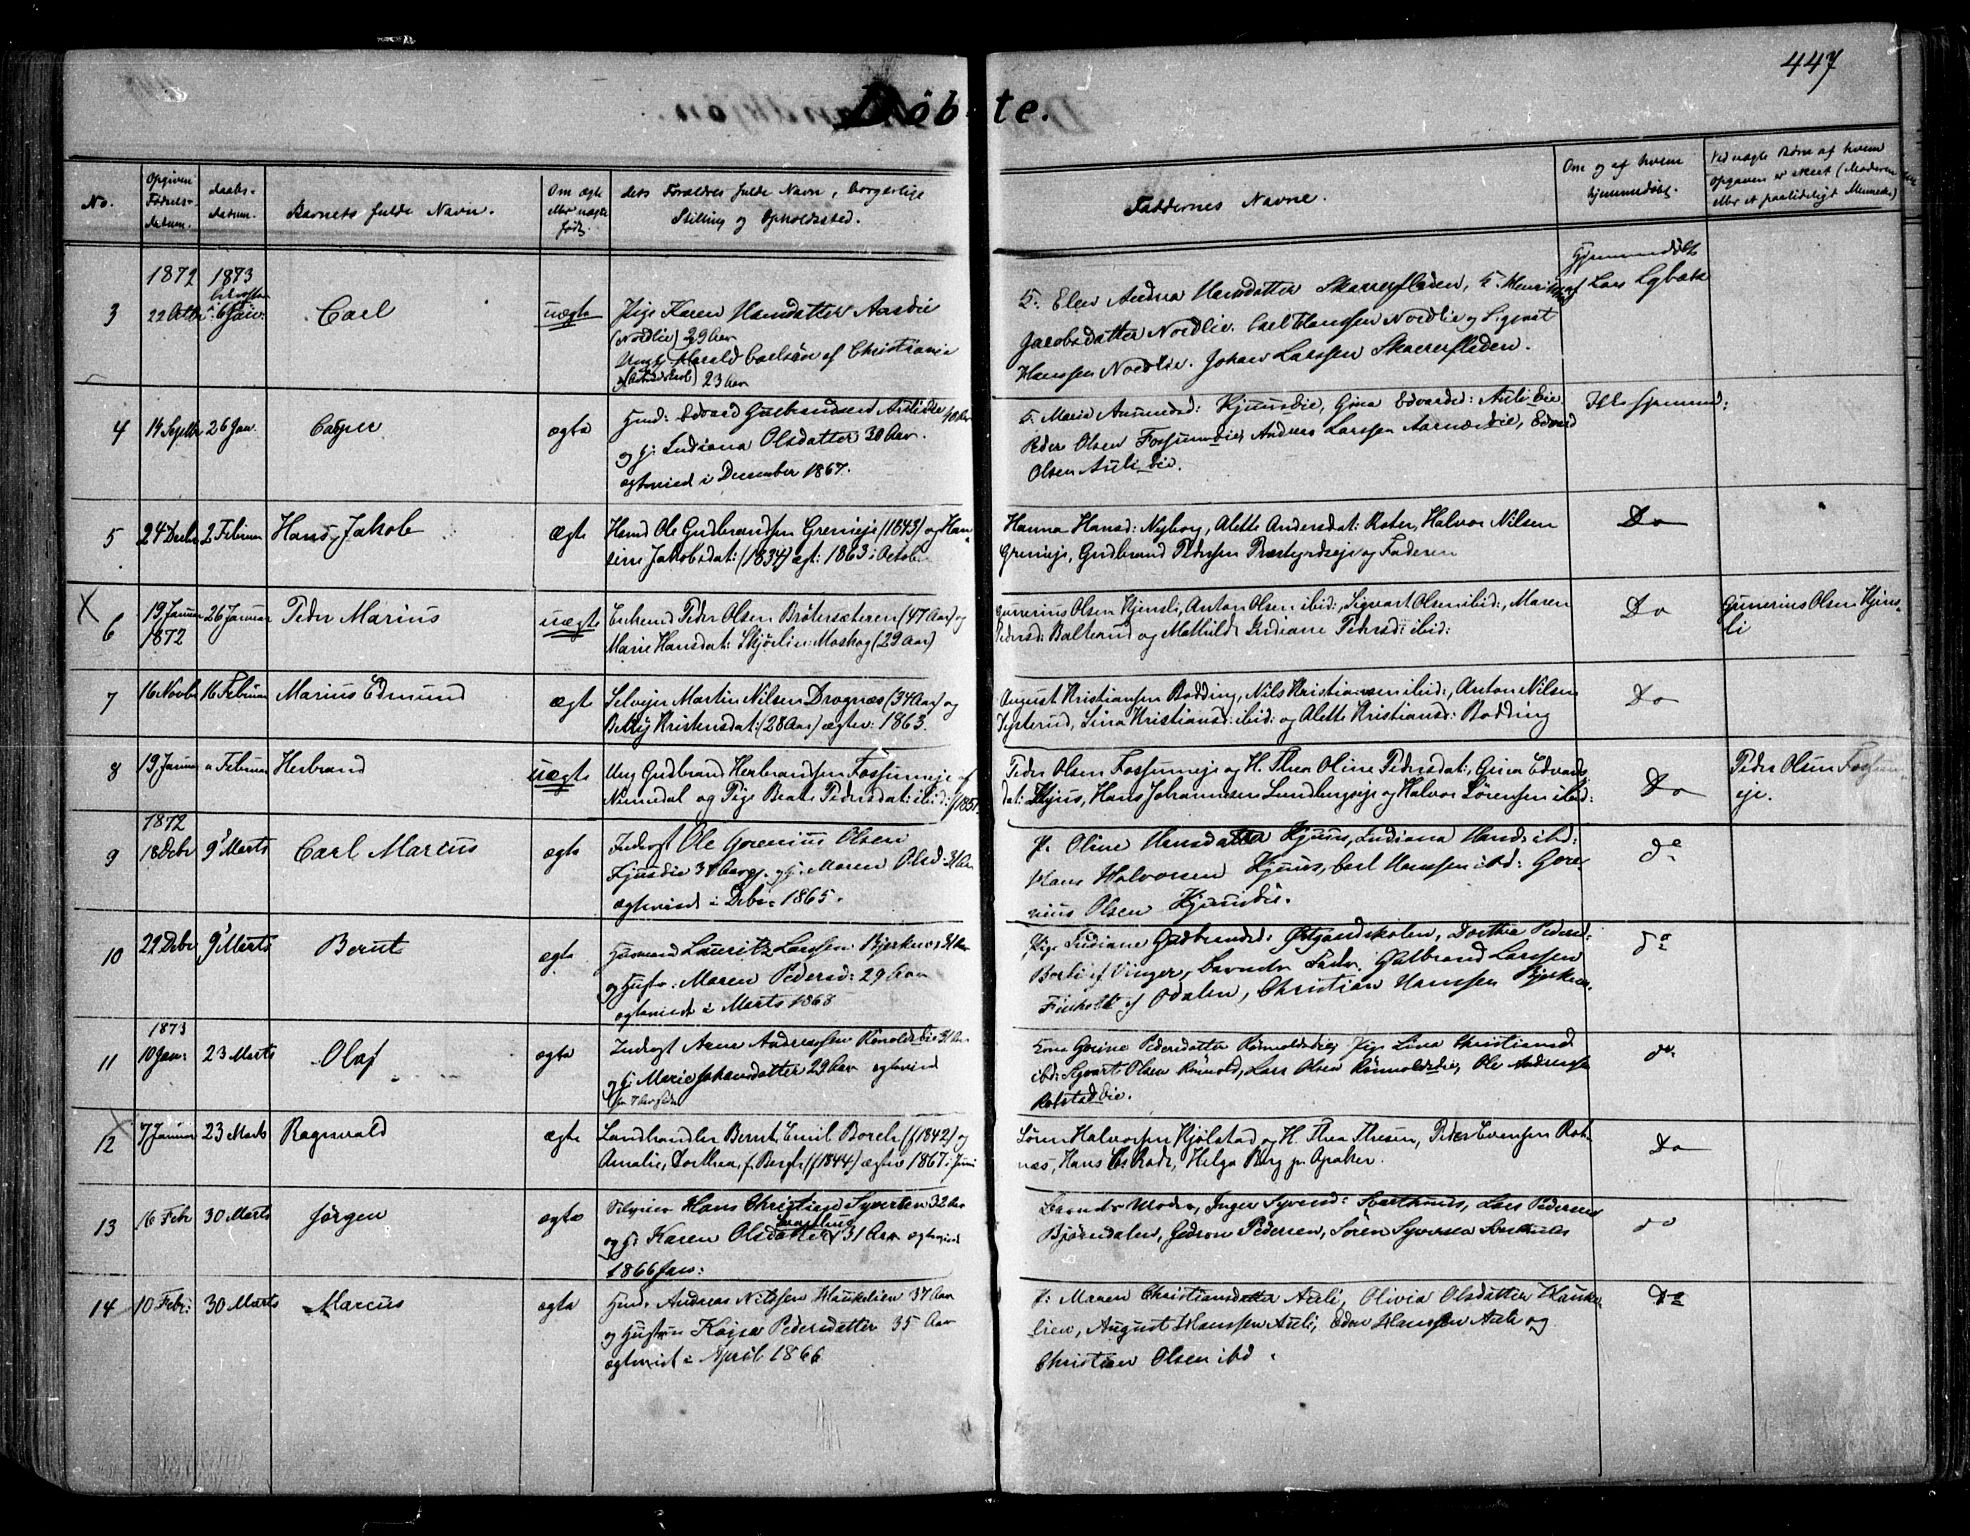 447
Döb-te.
No.
Opgiven Fødsels-datum.
daabs-datum.
Barnets fulde Navn.
Om ægte eller uægte født.
dets Forældres fulde Navn, borgerlige
Stilling og Opholdssted.
Faddernes Navne.
Om og af hvem
hjemmedøbt.
Ved uægte Børn af hvem
Opgaven er skeet (Moderen
eller et paalideligt Menneske)
1872 1873
3 22 Octbr 6 Jan. Carl uægte Pige Karen Hansdatter Aasdie
(Nordlie) 29 Aar
Ungk. Harald Carlsön af Christiania
23 Aar
F. Elev Andrea Hansdatter Skarerfladen, F. Henrikka
Jacobsdatter Nordlie. Carl Hanssen Nordlie og Sigvart
Hanssen Nordlie. Johan Larssen Skarerfladen.
Hjemmedöbt
af Lars Lybæk
4 14 Septbr 26 Jan. Casper ægte Husd: Edvard Gulbrandsen Aulidie 40 Aar
og h: Indiana Olsdatter 30 Aar.
ægteviede i December 1867.
F. Marie Amundsd: Kjuusdie, Gina Edvardsd: Aulidie
Peder Olsen Fossumdie, Andreas Larssen Aarnæsdie, Edvard
Olsen Aulidie.
Ikke hjemmed:
5 24 Decbr 2 Februar Hans Jakob Ægte Husmd Ole Gudbrandsen Grenieje (1843) og Han-
sine Jakobsdat: (1834) ægt: 1863 i Octob.
Hanna Hansd: Nyborg, Alette Andersdat: Roter, Halvor Nilsen
Grenieje, Gudbrand Pedersen Præstgrdseje og Faderen
Do
X 6 19 Januar 26 Januar Peder Marius uægte Enkemd Peder Olsen Bröterseteren (47 Aar) og
1872 Marie Hansdat: Skjörlin: Moshog (29 Aar)
Gunerius Olsen Kjensli, Anton Olsen ibid:, Sigvart Olsen ibid:, Maren
Pedersd: Baltrud og Mathilde Indiane Pedersd: ibid:
Do
Gunerius Olsen Kjens-
li
7 16 Novbr 16 Februar Marius Edmund ægte Selveier Martin Nilsen Drognæs (34 Aar) og
Betzy Kristensdat: (28 Aar) ægtev: 1863.
August Kristiansen Bodding, Nils Kristiansen ibid:, Anton Nilsen
Lina Kristiansd: ibid: og Alette Kristiansd: Bodding
Do
8 19 Januar Februar Herbrand uægte Ung Gudbrand Herbrandsen Fossumeje af
Nannestad og Pige Beate Pedersdat: ibid: (1851)
Peder Olsen Fossumeje og H. Thea Oline Pedersdat:, Gina Edvards
dat: Kjus, Hans Johannesen Lundbergseje og Halvor Sörensen ibid:
Do
Peder Olsen Fossum-
eje.
1872
9 18 Debr 9' Marts Carl Marcus ægte Inderst Ole Gorenius Olsen
Kjusdie 31 Aar og h: Maren Olsd: 31 Aar
ægteviede i Debr 1865.
P. Oline Hansdatter Kjuus, Indiana Hansd: ibd:
Hans Halvorsen Kjuus, Carl Hanssen ibd: Gore-
nius Olsen Kjuusdie.
do
10 29 Debr 9' Marts Bernt ægte Husmand Lauritz Larssen Bjerknes 31 Aar
og Hustr: Maren Pedersd: 29 Aar
ægteviede i Marts 1868
Pige Indiane Gudbrandsd: Østgaardskolen, Dorthea Pedersd:
Borli af Vinger, Barnets Fader, Gulbrand Larssen
Finholt af Odalen, Christian Hanssen Bjerknes.
do
1873
11 10 Jan: 23 Marts Olaf ægte Inderst Arne Andreassen Rönoldsdie 31 Aar
og h: Marie Johansdatter 29 Aar ægteviede
for 7 Aar siden
Kona Gorine Pedersdatter Rönnoldsdie, Pige Lina Christiansd
ibd: Sigvart Olsen Rönold, Lars Olsen Rönnoldsdie, Ole Andreassen
Rolstaddie.
do
X 12 7 Januar 23 Marts Ragnvald ægte Landhandler Bernt Emil Borch (f 1842) og
Amalie Dorthea f. Bergh (f 1844) ægtev 1867 i Juni
Sören Halvorsen Hjölstad og H. Thea Thesen, Peder Evensen Rot-
næs, Hans Chs Rode, Helga Berg pr Apaker.
Do
13 16 Febr 30 Marts Jörgen ægte Selveier Hans Christian Syversen 32 Aar
og h: Karen Olsdatter 31 Aar ægteviede
1866 Jan:
Barnets Moder, Inger Syversd: Sarthnes, Lars Pedersen
Björndalen, Gedion Pedersen, Sören Syversen Sarthnes
do
14 10 Febr: 30 Marts Marcus ægte Husd: Andreas Nilssen Haukelien 37 Aar
og Hustru Kajsa Pedersdatter 35 Aar
ægteviet i April 1866
P: Maren Christiansdatter Auli, Olivia Olsdatter Hauke-
lien, August Hanssen Auli, Edvr Hanssen Auli og
Christian Olsen ibd.
Do